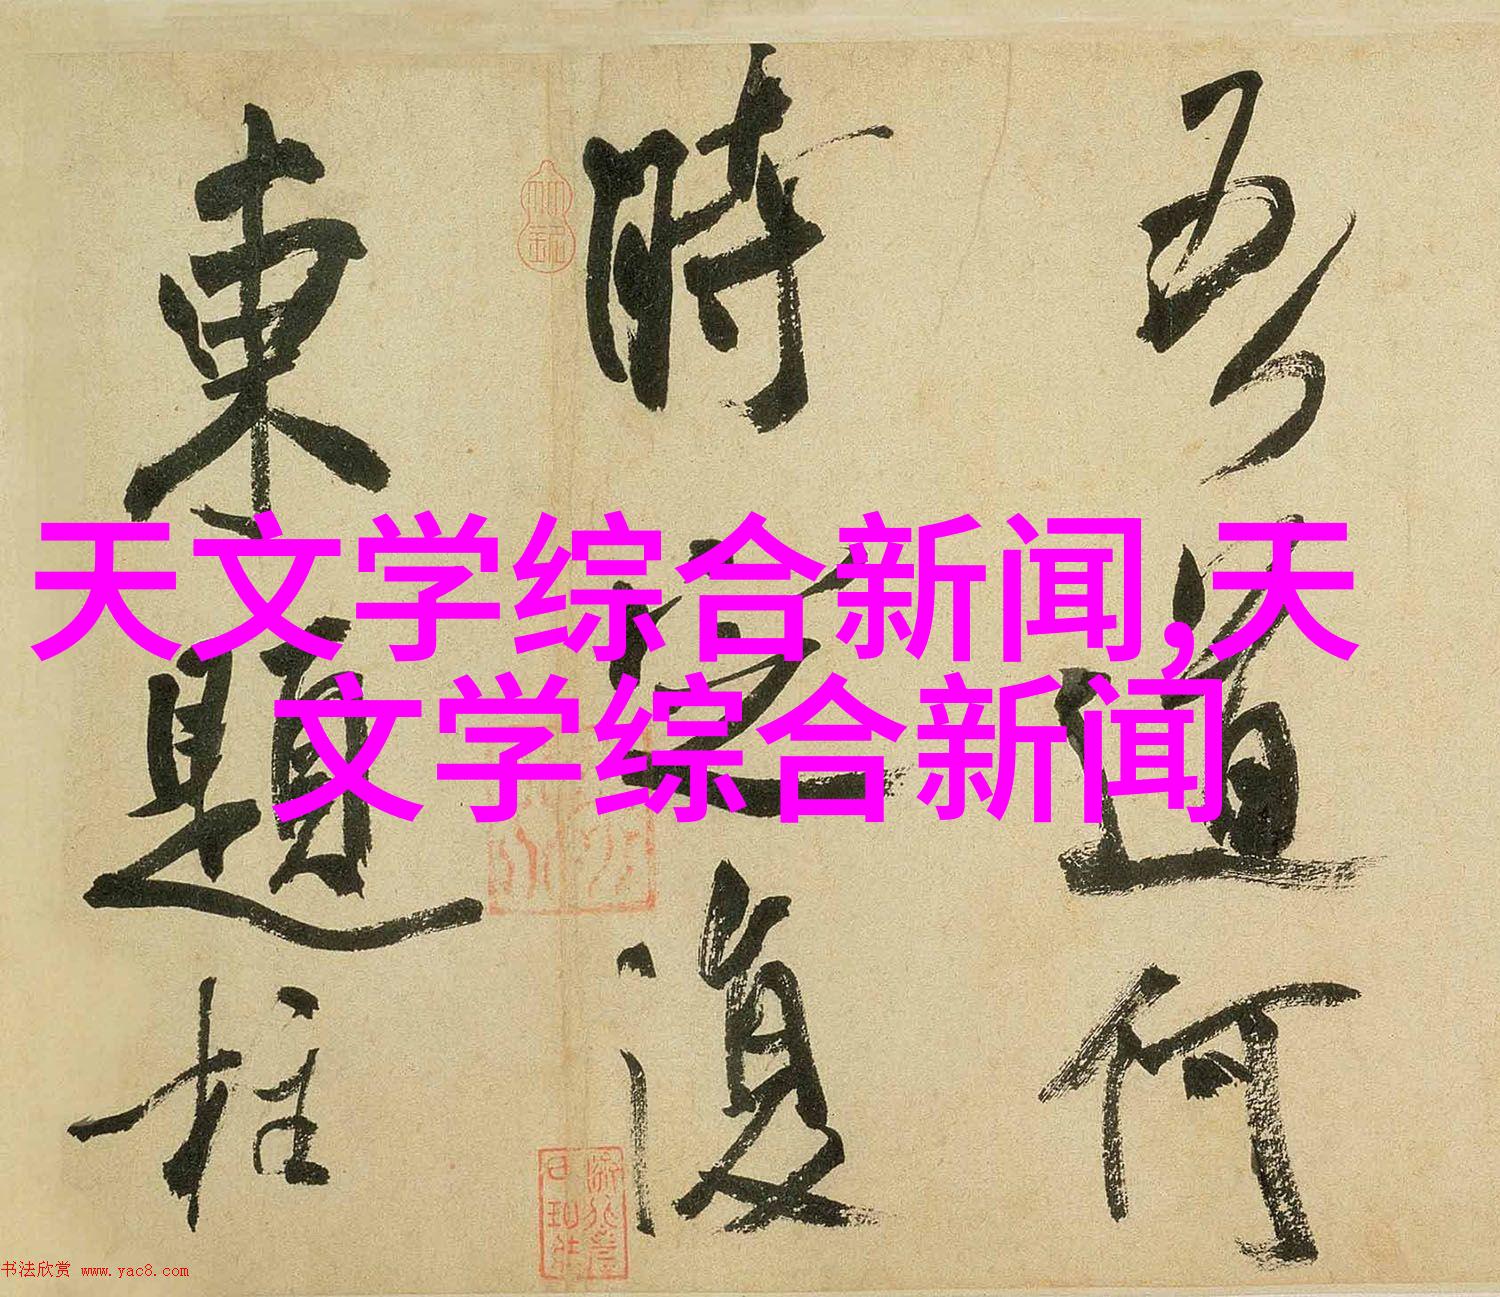 吾道何
時定復
東題柱
天文学综合新闻,天
文学综合新闻
书法欣赏 www.yac8.com